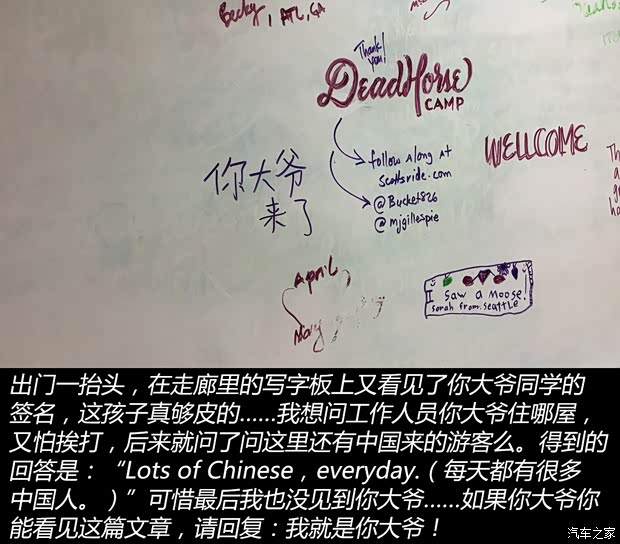 Becky, ATL, GA
Thank you!
DeadHorse
CAMP
WELLCOME
follow Along At
Scottsride.com
@Bucket826
@mjgillespie
你大爷
来了
April
I Saw a Moose!
Sarah from Seattle
出门一抬头，在走廊里的写字板上又看见了你大爷同学的
签名，这孩子真够皮的......我想问工作人员你大爷住哪屋，
又怕挨打，后来就问了问这里还有中国来的游客么。得到的
回答是：“Lots of Chinese，everyday.（每天都有很多
中国人。）”可惜最后我也没见到你大爷......如果你大爷你
能看见这篇文章，请回复：我就是你大爷！
汽车之家